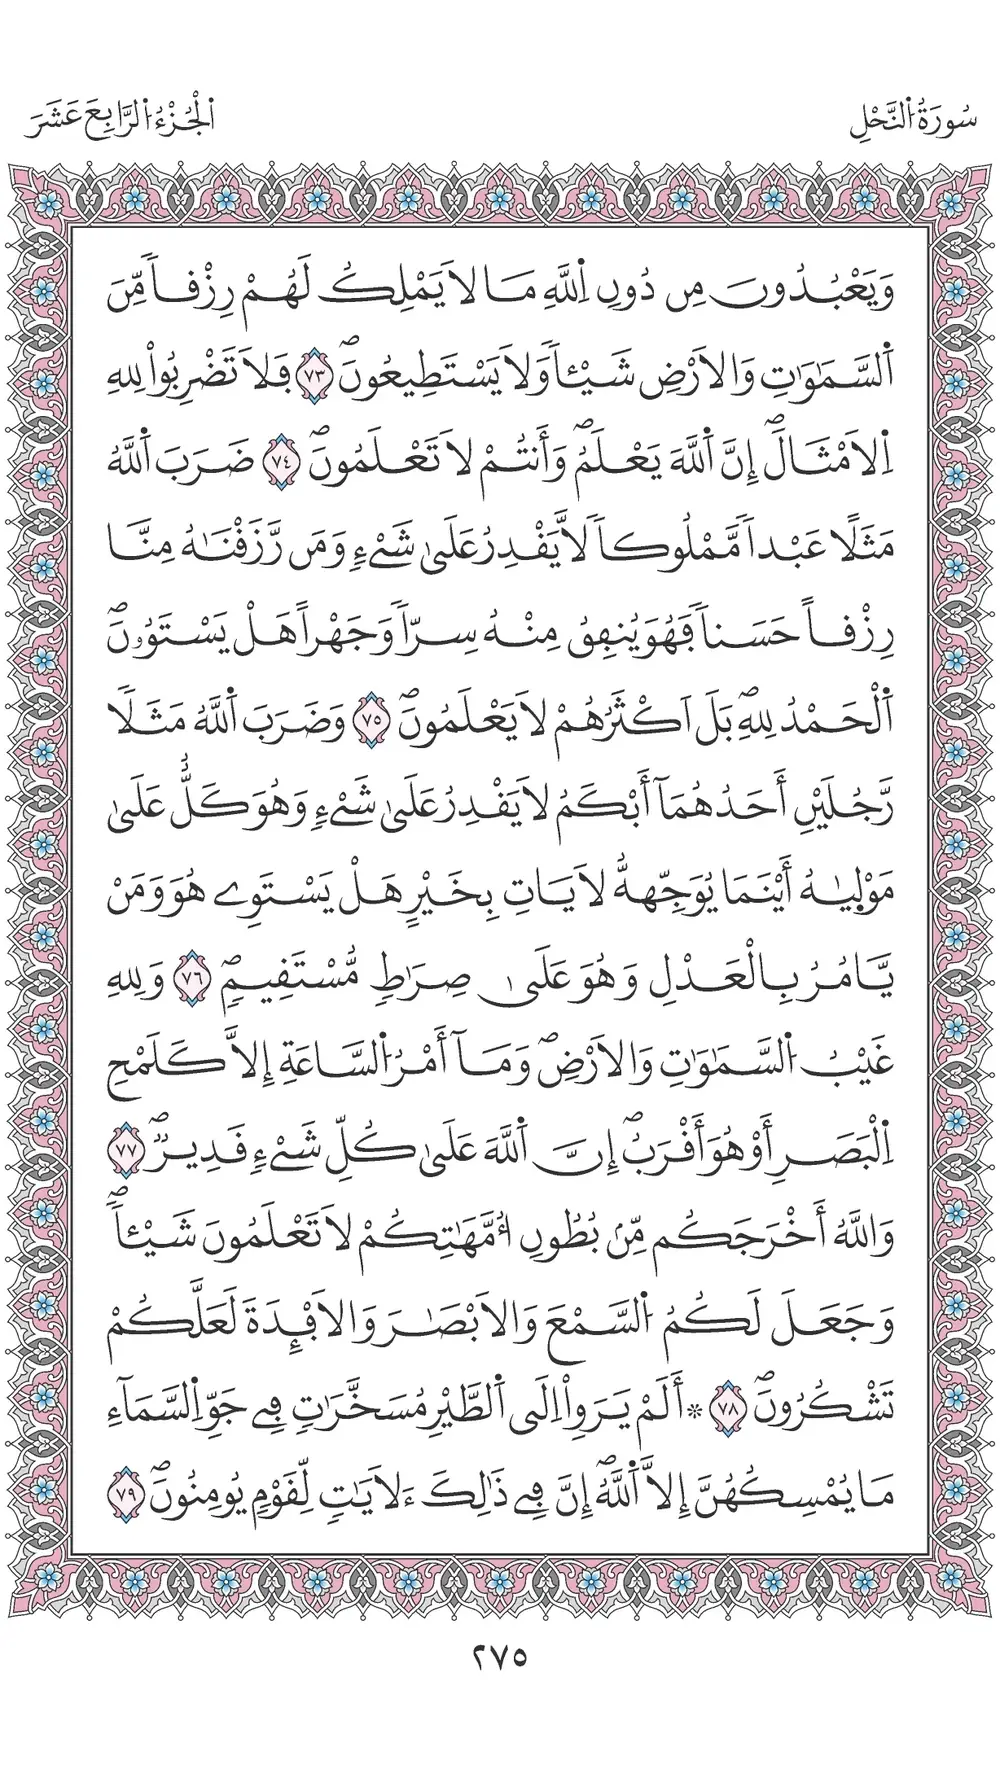 سُورَةُ اُ۬لنَّحْلِ
اَ۬لْجُزْءُ اُ۬لرَّابِعَ عَشَرَ
وَيَعْبُدُونَ مِن دُونِ اِ۬للَّهِ مَا لَا يَمْلِكُ لَهُمْ رِزْقاٗ مِّنَ
اَ۬لسَّمَٰوَٰتِ وَالَارْضِ شَيْـٔاٗ وَلَا يَسْتَطِيعُونَۖ ٧٣ فَلَا تَضْرِبُواْ لِلهِ
اِ۬لَامْثَالَۖ إِنَّ اَ۬للَّهَ يَعْلَمُۖ وَأَنتُمْ لَا تَعْلَمُونَۖ ٧٤ ضَرَبَ اَ۬للَّهُ
مَثَلًا عَبْداٗ مَّمْلُوكاٗ لَّا يَقْدِرُ عَلَىٰ شَےْءٖ وَمَن رَّزَقْنَٰهُ مِنَّا
رِزْقاً حَسَناٗ فَهُوَ يُنفِقُ مِنْهُ سِرّاٗ وَجَهْراً هَلْ يَسْتَوُۥنَۖ
اَ۬لْحَمْدُ لِلهِۖ بَلَ اَكْثَرُهُمْ لَا يَعْلَمُونَۖ ٧٥ وَضَرَبَ اَ۬للَّهُ مَثَلٗا
رَّجُلَيْنِ أَحَدُهُمَآ أَبْكَمُ لَا يَقْدِرُ عَلَىٰ شَےْءٖ وَهُوَ كَلٌّ عَلَىٰ
مَوْل۪يٰهُ أَيْنَمَا يُوَجِّههُّ لَا يَاتِ بِخَيْرٍ هَلْ يَسْتَوِے هُوَ وَمَنْ
يَّامُرُ بِالْعَدْلِ وَهُوَ عَلَىٰ صِرَٰطٖ مُّسْتَقِيمٖۖ ٧٦ وَلِلهِ
غَيْبُ اُ۬لسَّمَٰوَٰتِ وَالَارْضِۖ وَمَآ أَمْرُ اُ۬لسَّاعَةِ إِلَّا كَلَمْحِ
اِ۬لْبَصَرِ أَوْ هُوَ أَقْرَبُۖ إِنَّ اَ۬للَّهَ عَلَىٰ كُلِّ شَےْءٖ قَدِيرٞۖ ٧٧
وَاللَّهُ أَخْرَجَكُم مِّنۢ بُطُونِ أُمَّهَٰتِكُمْ لَا تَعْلَمُونَ شَيْـٔاٗۖ
وَجَعَلَ لَكُمُ اُ۬لسَّمْعَ وَالَابْصَٰرَ وَالَافْـِٕدَةَ لَعَلَّكُمْ
تَشْكُرُونَۖ ٧٨ * أَلَمْ يَرَوِاْ اِلَى اَ۬لطَّيْرِ مُسَخَّرَٰتٖ فِے جَوِّ اِ۬لسَّمَآءِ
مَا يُمْسِكُهُنَّ إِلَّا اَ۬للَّهُۖ إِنَّ فِے ذَٰلِكَ ءَلَايَٰتٖ لِّقَوْمٖ يُومِنُونَۖ ٧٩
٢٧٥